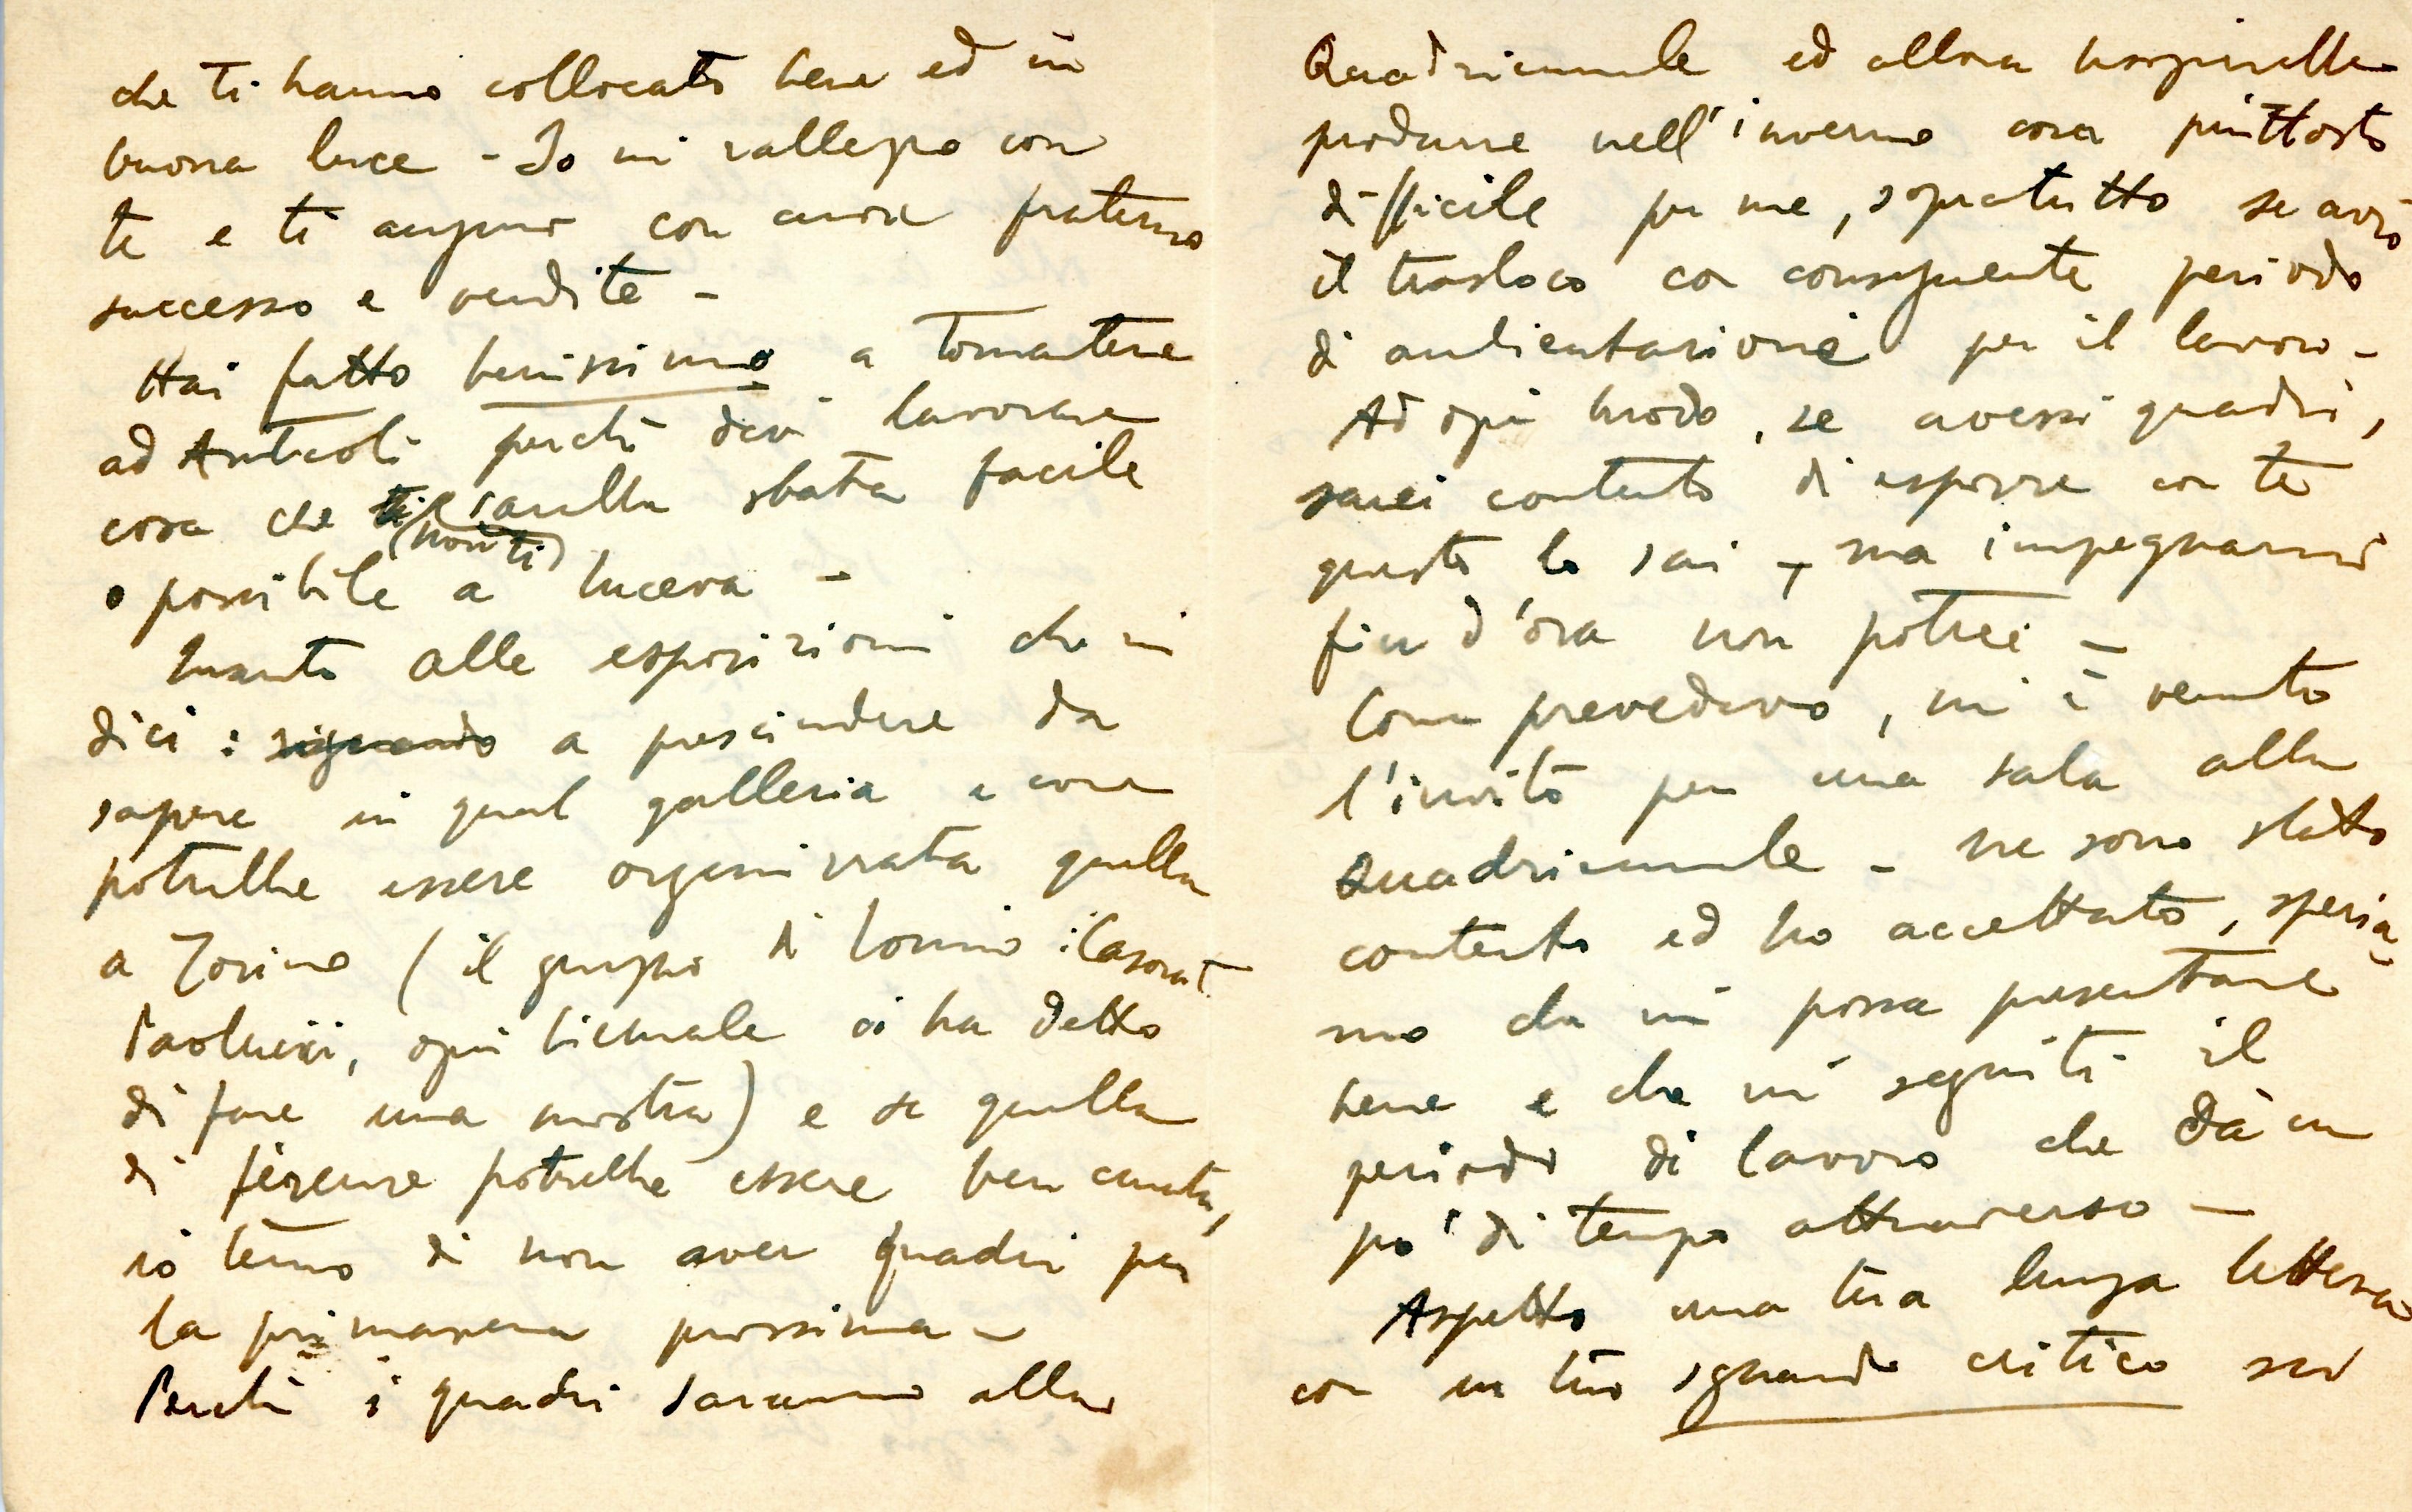 che ti hanno collocato bene ed in
buona luce - Io mi rallegro con
te e ti auguro con cuore fraterno
successo e vendite -
Hai fatto benissimo a tornartene
ad Anticoli perché devi lavorare
cosa che (non ti) sarebbe stata facile
o possibile a Lucera -
Quanto alle esposizioni che mi
dici : riguardo a prescindere da
sapere in qual galleria e come
potrebbe essere organizzata quella
a Torino ( il gruppo di Torino : Casorat.
Paolucci, ogni biennale ci ha detto
di fare una mostra) e se quella
di firenze potrebbe essere ben curata,
io temo di non aver quadri per
la primavera prossima -
Perché i quadri saranno alla
Quadriennale ed allora bisognerebbe
produrre nell'inverno cosa piuttosto
difficile per me, sopratutto se avrò
il trasloco con conseguente periodo
di ambientazione per il lavoro -
Ad ogni modo, se avessi quadri,
sarei contento di esporre con te
questo lo sai - ma impegnarmi
fin d'ora non potrei -
Come prevedevo, mi è venuto
l'invito per una sala alla
Quadriennale - ne sono stato
contento ed ho accettato, speria-
mo che mi possa presentare
bene e che mi seguiti il
periodo di lavoro che dà un
po' di tempo attraverso -
Aspetto una tua lunga lettera
con un tuo sguardo critico sul